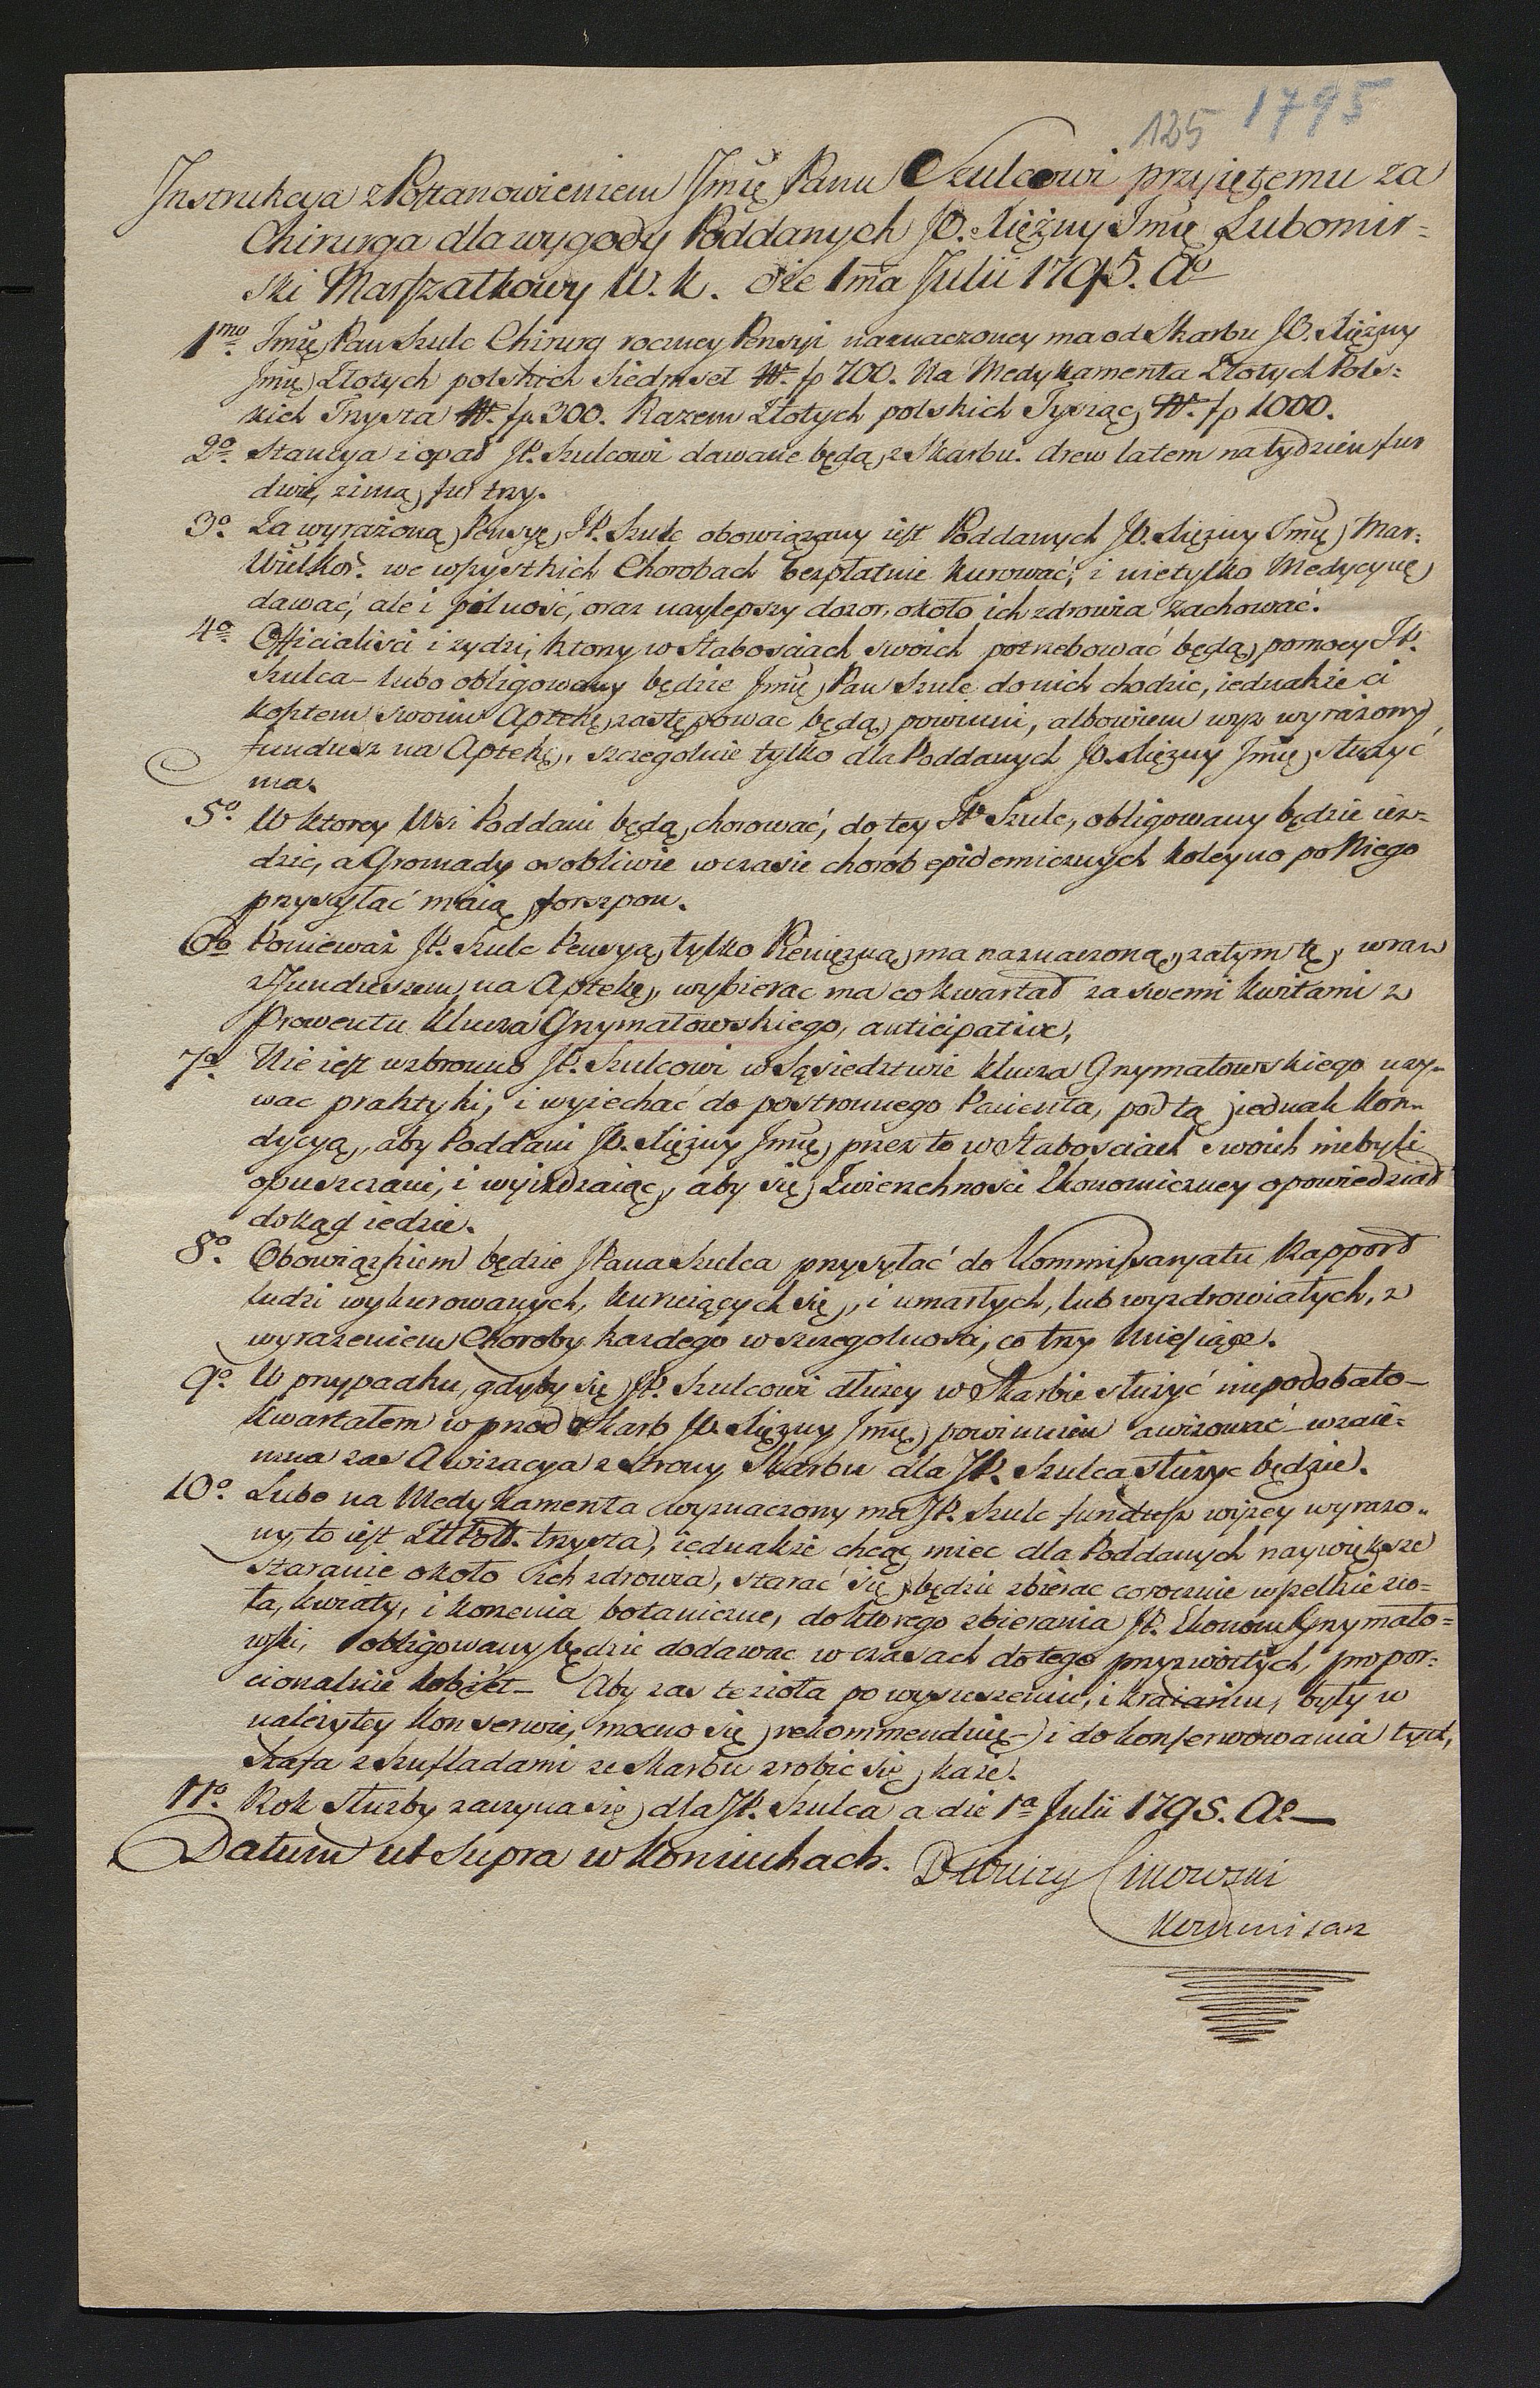 125 1795
Instrukcya z Postanowieniem Jmię Panu Szulcowi przyiętemu za
Chirurga dla wygody Poddanych JO. Xiężny Jmię Lubomir=
ski Marszałkowy W. K. die 1ma Julii 1795. Ao
1mo. Jmię Pan Szulc Chirurg roczney Pensyi naznaczoney ma od Skarbu JO. Xiężny
Jmię Złotych polskich Siedmset fp 700. Na Medykamenta Złotych Pols=
kich Trzysta fp. 300. Razem Złotych polskich Tysiąc fp 1000.
2o. Stancya i opał JP. Szulcowi dawane będą z Skarbu. drew latem na tydzień fur
dwie, zimą fur trzy.
3o. Za wyrażoną Pensyę JP. Szulc obowiązany iest Poddanych JO. Xiężny Jmię Mar:
Wielkoř. we wszystkich Chorobach bezpłatnie kurować, i nietylko Medycynę
dawać, ale i pilność, oraz naylepszy dozor, około ich zdrowia zachować.
4o. Officialisci i zydzi, ktorzy w Słabosciach swoich potrzebować będą pomocy JP.
Szulca – lubo obligowany będzie Jmię Pan Szulc do nich chodzic, iednakże ci
kosztem swoim Aptekę zastępowac będą powinni, albowiem wyz wyrażony
fundusz na Aptekę, szczegolnie tylko dla Poddanych JO. Xiężny Jmię słuzyć
ma.
5o. W ktorey Wsi Poddani będą chorować, do tey JP. Szulc, obligowany będzie ież=
dzic, a Gromady osobliwie w czasie chorob epidemicznych koleyno po Niego
przysyłać maią forszpon.
6o Ponieważ JP. Szulc Pensyą tylko Pieniężną ma naznaczoną, zatym tę wraz
z Funduszem na Aptekę, wybierac ma co kwartał za swemi kwitami z
Prowentu Klucza Grzymałowskiego, anticipative,
7o. Nie iest wzbronno JP. Szulcowi w Sąsiedztwie klucza Grzymałowskiego uzy=
wac praktyki, i wyiechać do postronnego Pacienta, pod tą jednak kon=
dycyą, aby Poddani JO. Xiężny Jmię przez to w Słabosciach swoich niebyli
opuszczani, i wyieżdzaiąc, aby się Zwierzchnosci Ekonomiczney opowiedział
dokąd iedzie.
8o. Obowiązkiem będzie JPana Szulca przysyłać do Kommissaryatu Rapport
ludzi wykurowanych, kuruiących się, i umarłych, lub wyzdrowiałych, z
wyrazeniem Choroby kazdego w szczegolnosci, co trzy Miesiące.
9o. W przypadku, gdyby się JP. Szulcowi dłużey w Skarbie służyć niepodobało –
kwartałem w przod Skarb JO. Xiężny Jmię powinnien awizować – wzaie=
mna zas Awizacya z strony Skarbu dla JP. Szulca służyc będzie.
10o. Lubo na Medykamenta wyznaczony ma JP. Szulc fundusz wyżey wyrazo=
ny, to iest trzysta, iednakże chcąc miec dla Poddanych naywiększe
staranie około ich zdrowia, starać się będzie zbierac corocznie wszelkie zio=
ła, kwiaty, i korzenia botaniczne, do ktorego zbierania JP. Ekonom Grzymało=
wski, obligowany będzie dodawac w czasach do tego przyzwoitych, propor=
cionalnie kobiet – Aby zas te zioła po wysuszeniu, i kraianiu, były w
należytey konserwie, mocno się rekommenduie – i do konserwowania tych,
Szafa z Szufladami ze Skarbu zrobic się kaze.
11o. Rok służby zaczyna się dla JP. Szulca a die 1a Julii 1795. Ao –
Datum ut supra w Koniuchach.
Linowski
Kommisarz